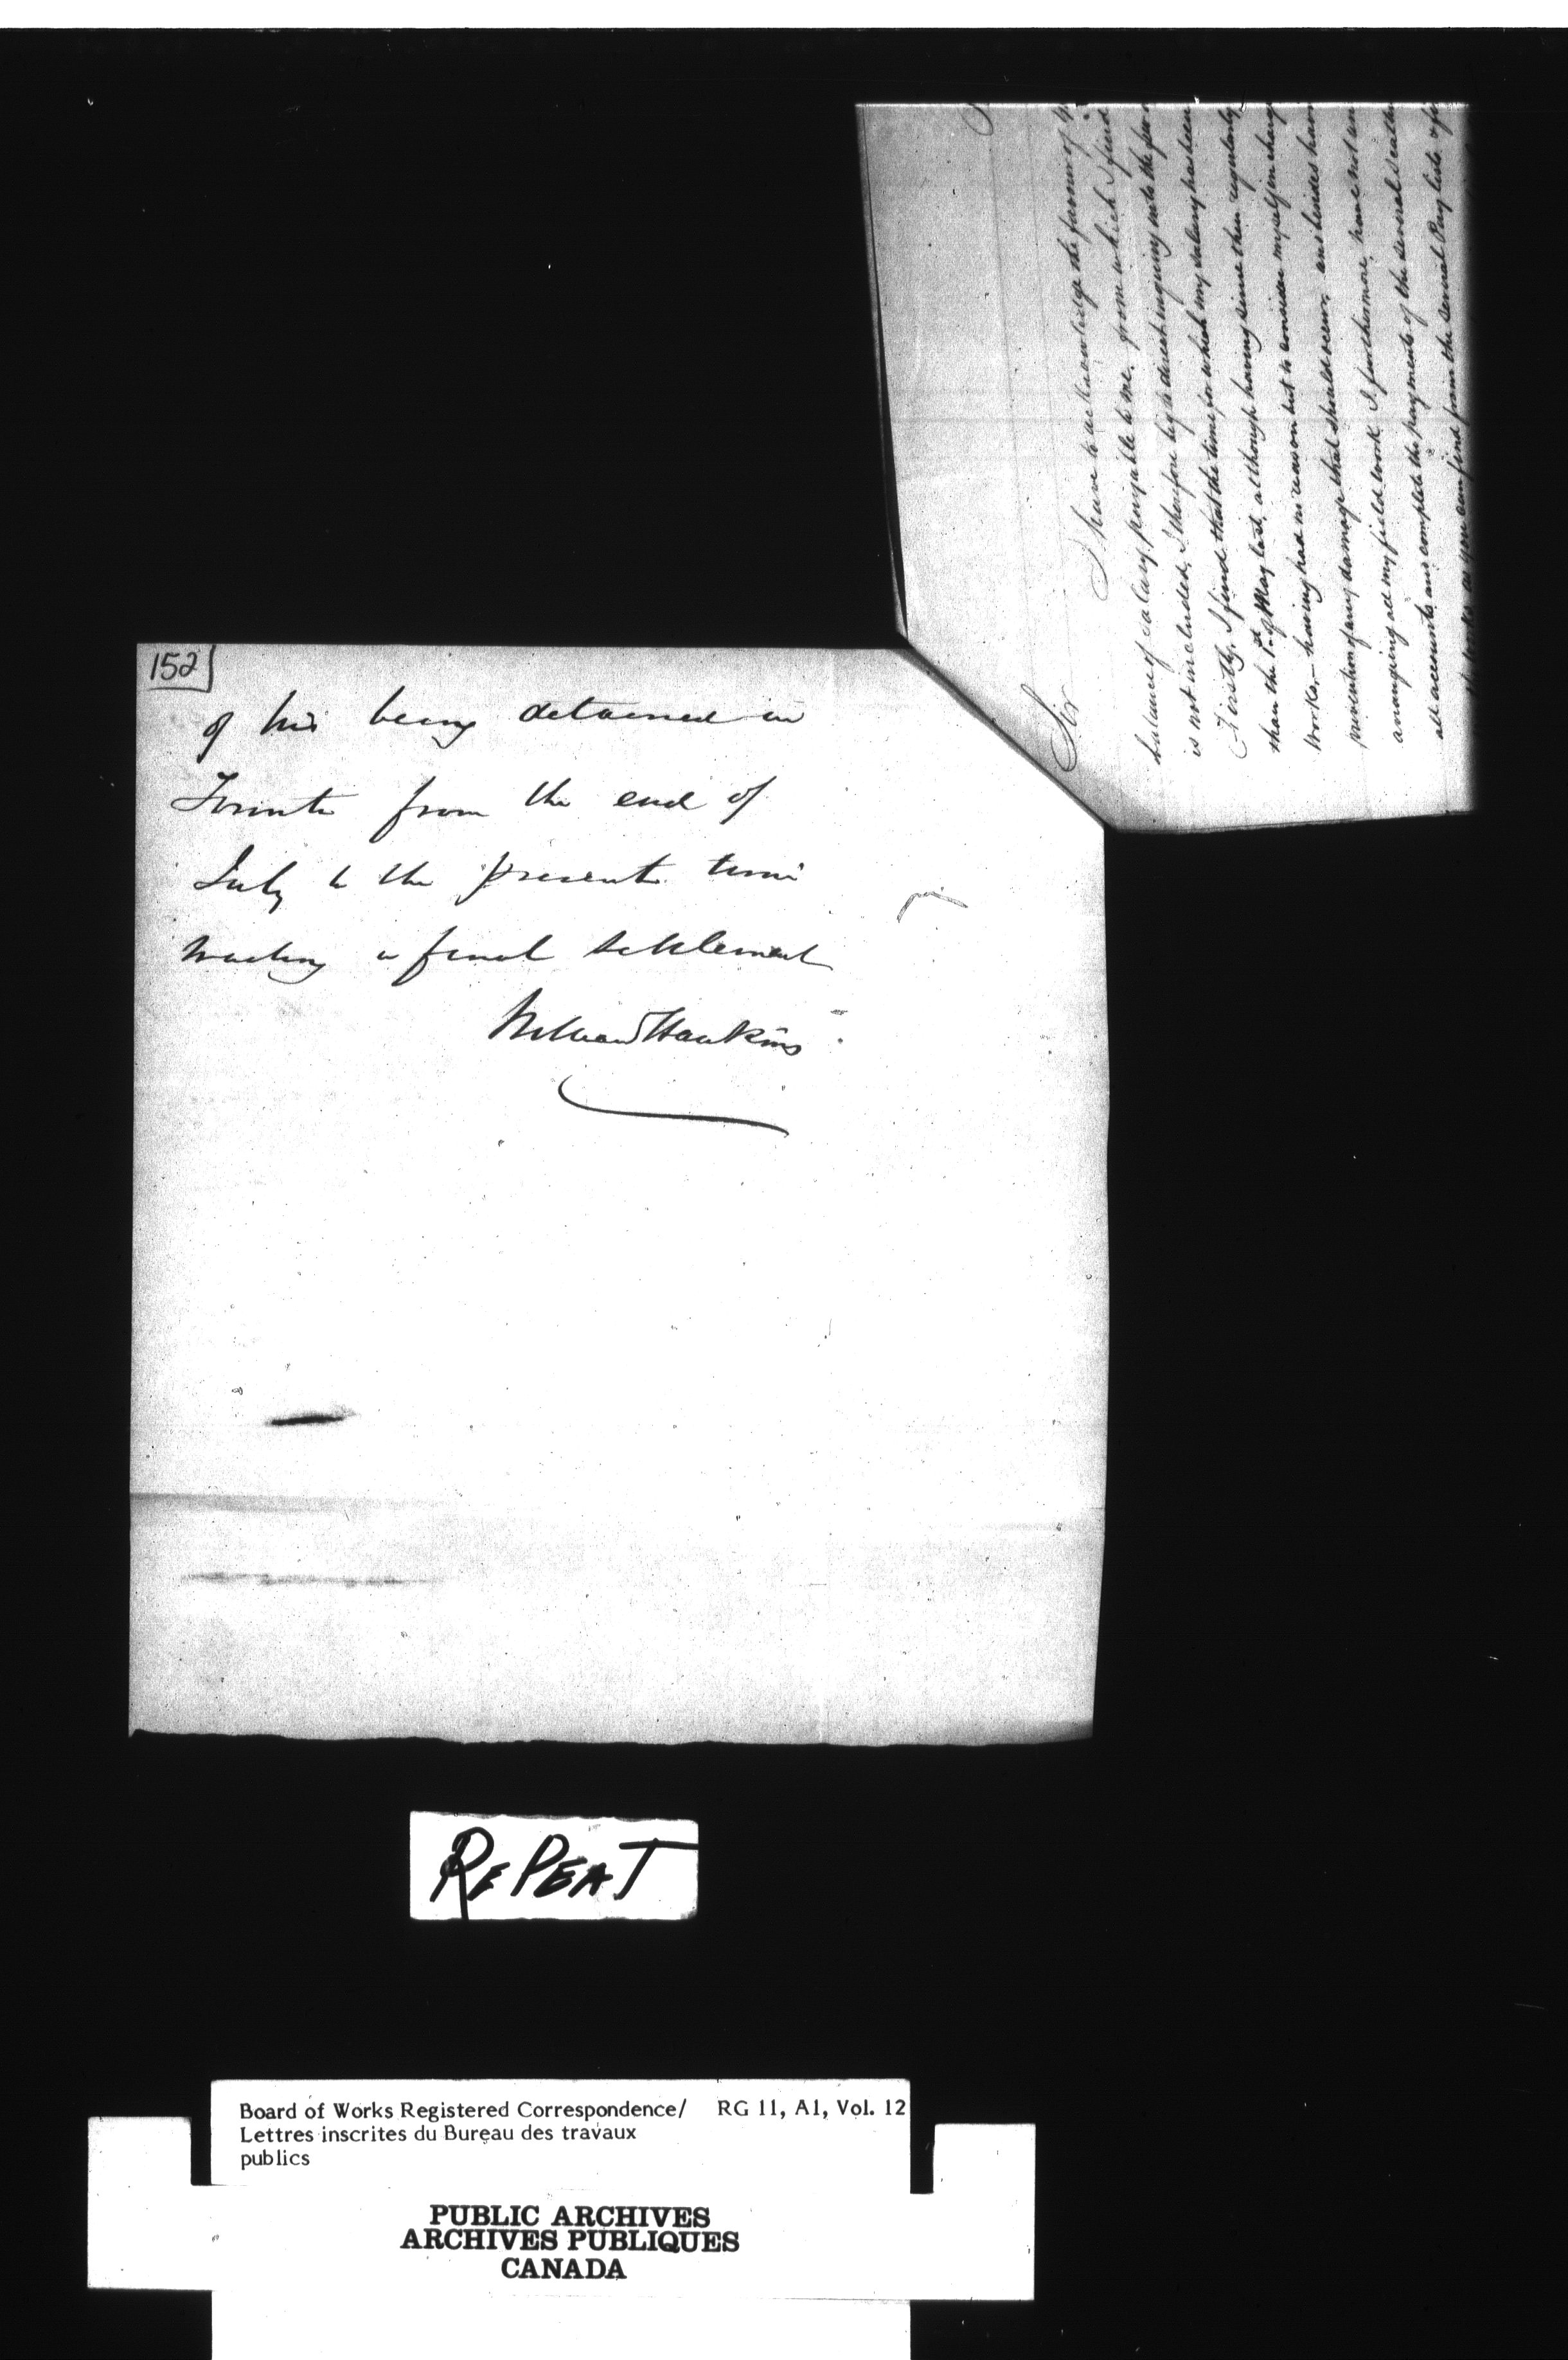 152
of his being detained in
Toronto from the end of
July to the present time
waiting a final settlement
William Hawkins
Sir
I have to acknowledge the favour of
balance of salary payable to me, from which I find
is not included, I therefore beg to direct inquiry into the
Firstly, I find that the time for which my salary has been
than the 1st of May last, although having since then regularly
Works,— having had no reason but to consider myself in charge
prevention of any damage that should occur, and besides have
arranging all my field work. I furthermore, have not
all accounts and complete the payments of the several
as you can find from the several Pay lists
REPEAT
Board of Works Registered Correspondence/ RG 11, A1, Vol. 12
Lettres inscrites du Bureau des travaux
publics
PUBLIC ARCHIVES
ARCHIVES PUBLIQUES
CANADA